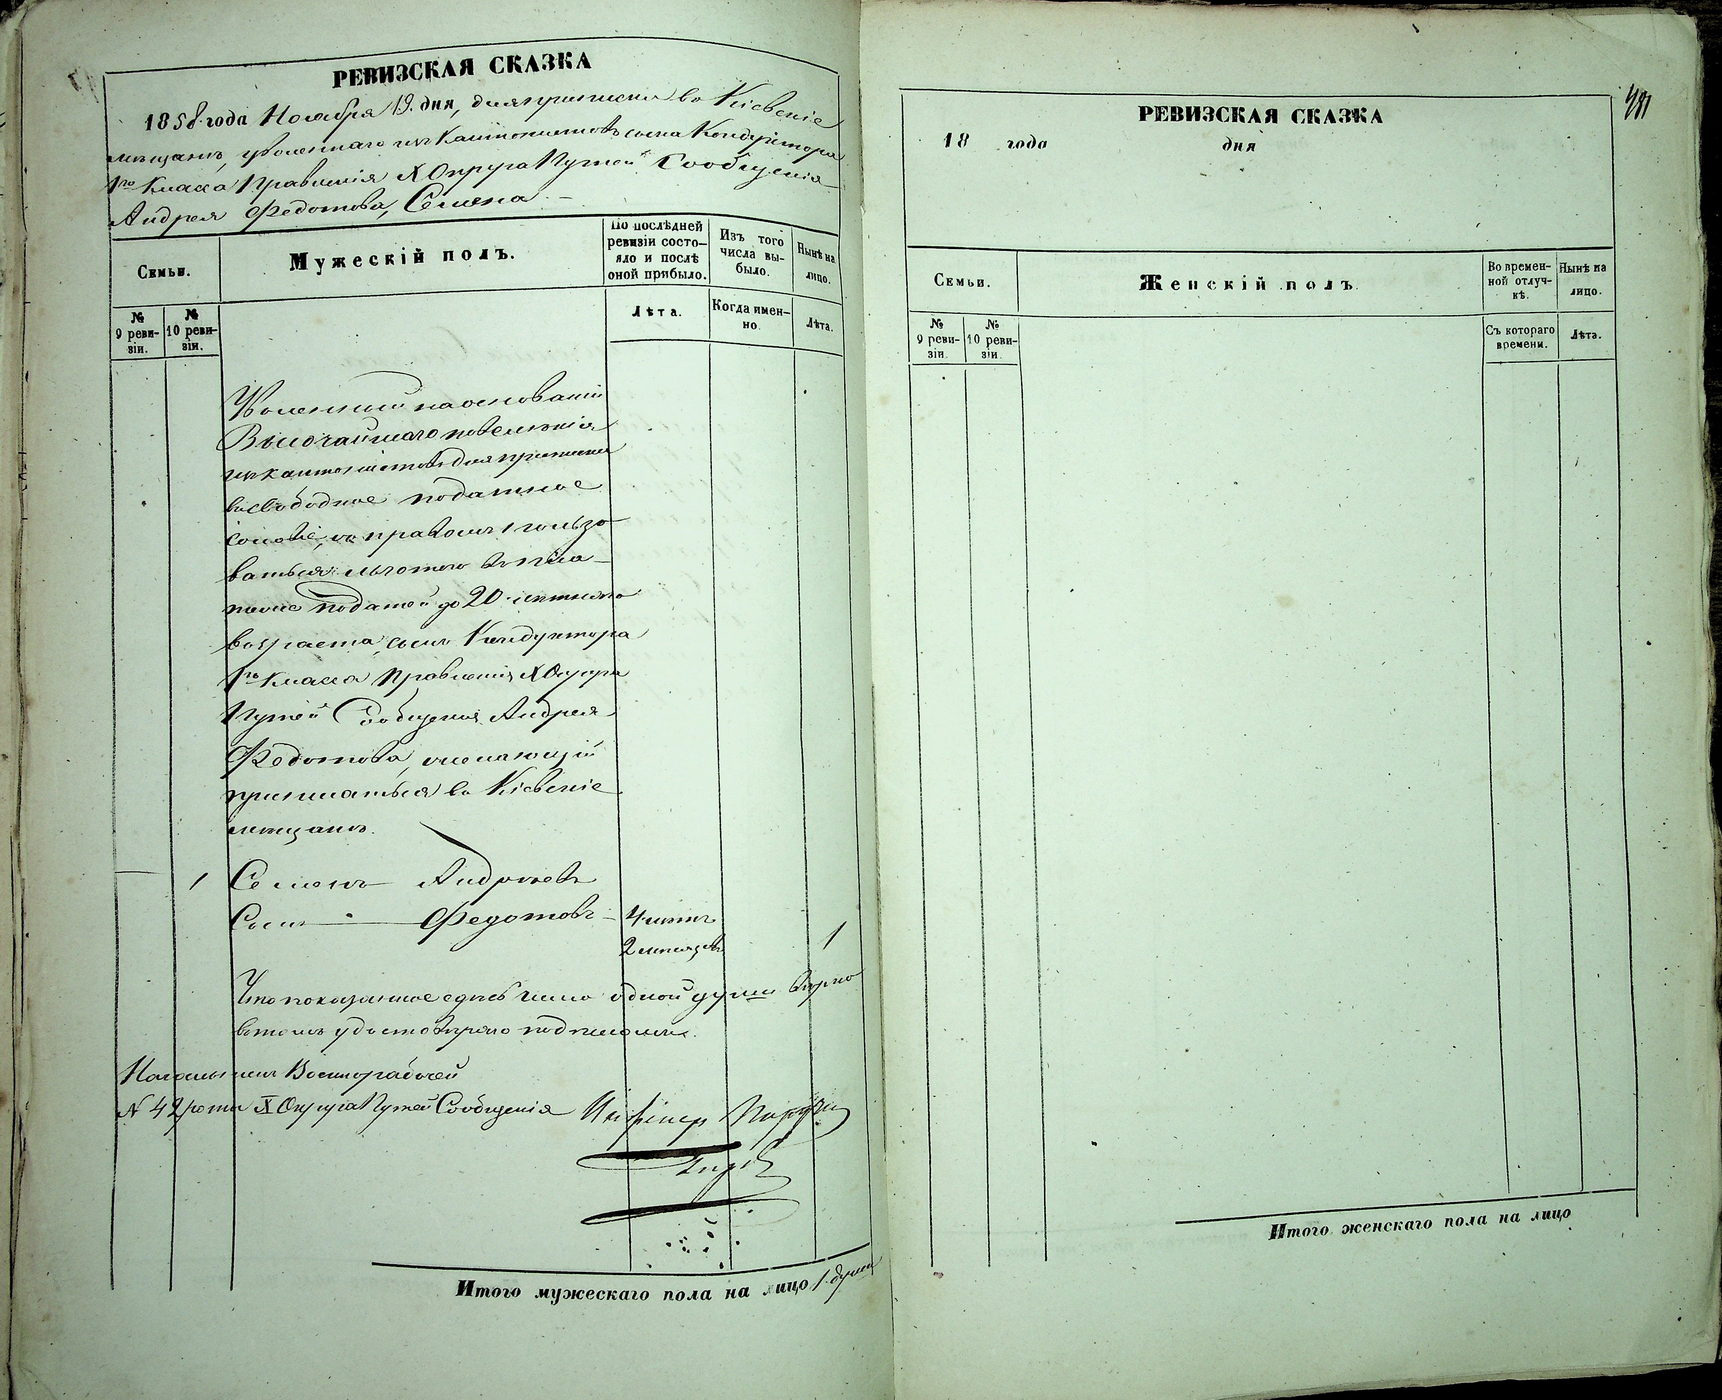 РЕВИЗСКАЯ СКАЗКА
1858 года Ноября 19 дня, для приписки въ Кіевскіе
мѣщане, уволеннаго изъ Кантонистовъ сына Кондуктора
1го Класса Правленія X Округа Путей Сообщенія
Андрея Федотова, Семена
Семьи.
Мужескій полъ.
По послѣдней ревизіи состояло и послѣ оной прибыло.
Изъ того числа выбыло.
Нынѣ на лицо.
№ 9 ревизіи.
№ 10 ревизіи.
Лѣта.
Когда именно.
Лѣта.
Уволенный на основаніи
Высочайшаго повелѣнія
изъ кантонистовъ для приписки
въ свободное податное
сословіе, съ правомъ пользо-
ваться льготою въ пла-
тежѣ податей до 20 лѣтняго
возраста, сынъ Кондуктора
1го Класса Правленія X Округа
Путей Сообщенія Андрея
Федотова, желающій
приписаться въ Кіевскіе
мѣщане.
1 Семенъ Андреевъ
Сынъ Федотовъ 4 лѣтъ
2 мѣсяцевъ 1
Что показанное здѣсь число одной души вѣрно
въ томъ удостовѣряю подписомъ.
Начальникъ Военнорабочей
№ 42 роты X Округа Путей Сообщенія Инженер
Итого мужескаго пола на лицо 1 душа
РЕВИЗСКАЯ СКАЗКА
18 года дня
Семьи.
Женскій полъ
Во временной отлучкѣ.
Нынѣ на лицо.
№ 9 ревизіи.
№ 10 ревизіи.
Съ котораго времени.
Лѣта.
Итого женскаго пола на лицо